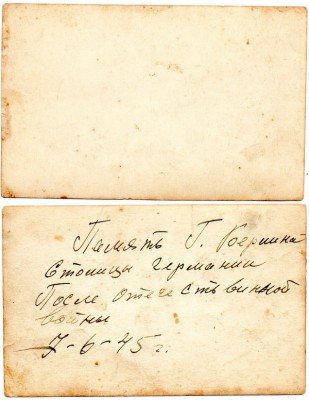 Память Г. Берлина
Столицы Германии
После отечественной
войны
7-6-45 г.